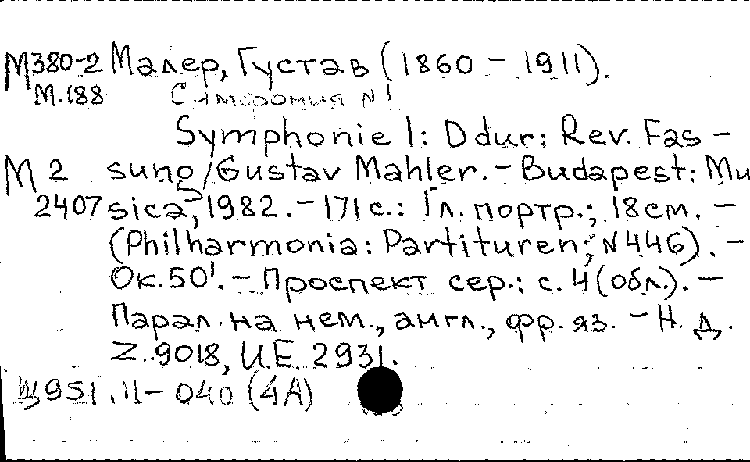 М380-2 Малер, Густав (1860 - 1911).
М.188 Симфония N 1
Symphonie 1: D dur: Rev. Fas -
М 2 sung / Gustav Mahler. - Budapest: Mu
2407 sica, 1982. - 171 с.: 1 л. портр.; 18 см. -
(Philharmonia: Partituren; N 446). -
Ок. 50'. - Проспект сер.: с. 4 (обл.). -
Парал. на нем., англ., фр. яз. - Н. д.
Z. 9018, U.E. 2931.
951.11- 040 (4А)